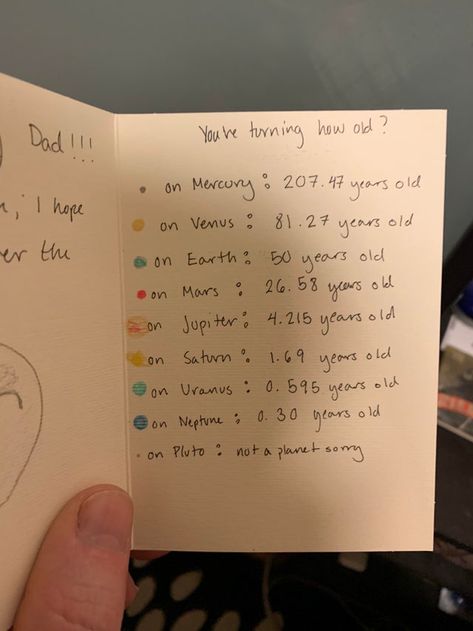 Dad!!!
I hope
the
You're turning how old?
on Mercury: 207.47 years old
on Venus: 81.27 years old
on Earth: 50 years old
on Mars: 26.58 years old
on Jupiter: 4.215 years old
on Saturn: 1.69 years old
on Uranus: 0.595 years old
on Neptune: 0.30 years old
on Pluto: not a planet sorry